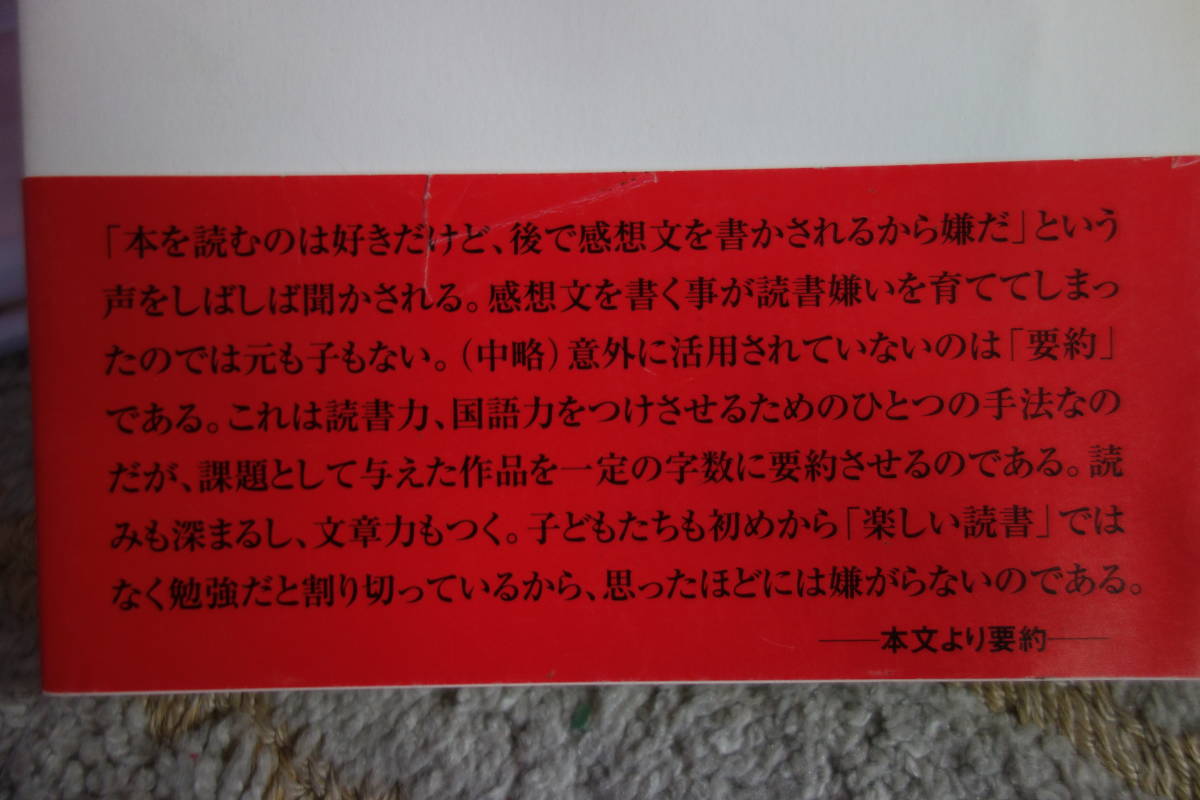 「本を読むのは好きだけど、後で感想文を書かされるから嫌だ」という
声をしばしば聞かされる。感想文を書く事が読書嫌いを育ててしまっ
たのでは元も子もない。(中略)意外に活用されていないのは「要約」
である。これは読書力、国語力をつけさせるためのひとつの手法なの
だが、課題として与えた作品を一定の字数に要約させるのである。読
みも深まるし、文章力もつく。子どもたちも初めから「楽しい読書」では
なく勉強だと割り切っているから、思ったほどには嫌がらないのである。
——本文より要約——